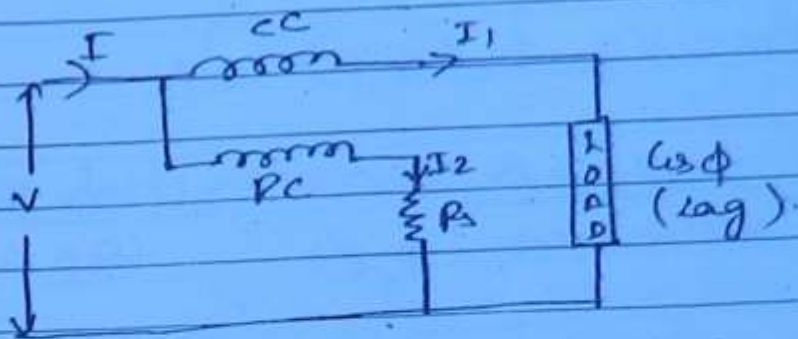 CC
I
I1
PC
I2
V
Rs
LOAD
Cosφ
(Lag).